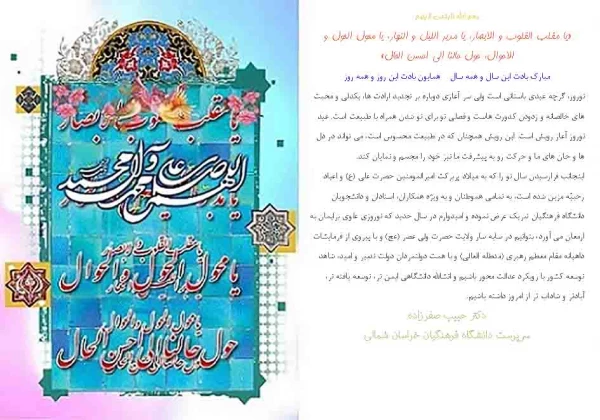 یا مقلب القلوب و الابصار
اللهم صل علی محمد و آل محمد
یا محول الحول و الاحوال
حول حالنا الی احسن الحال
بسم الله الرحمن الرحیم
«یا مقلب القلوب و الابصار، یا مدبر اللیل و النهار، یا محول الحول و
الاحوال، حول حالنا الی احسن الحال»
مبارک بادت این سال و همه سال همایون بادت این روز و همه روز
نوروز، گرچه عیدی باستانی است ولی سر آغازی دوباره بر تجدید ارادت ها، یکدلی و محبت
های خالصانه و زدودن کدورت هاست و فصلی نو برای نو شدن همراه با طبیعت است. عید
نوروز آغاز رویش است. این رویش همچنان که در طبیعت محسوس است، می تواند در دل
ها و جان های ما و حرکت رو به پیشرفت ما نیز خود را مجسم و نمایان کند.
اینجانب فرارسیدن سال نو را که به میلاد پربرکت امیرالمومنین حضرت علی (ع) و اعیاد
رجبیّه مزین شده است، به تمامی هموطنان و به ویژه همکاران، استادان و دانشجویان
دانشگاه فرهنگیان تبریک عرض نموده و امیدوارم در سال جدید که نوروزی علوی برایمان به
ارمغان می آورد، بتوانیم در سایه سار ولایت حضرت ولی عصر (عج) و با پیروی از فرمایشات
داهیانه مقام معظم رهبری (مدظله العالی) و با همت دولتمردان دولت تدبیر و امید، شاهد
توسعه کشور با رویکرد عدالت محور باشیم و انشالله دانشگاهی ایمن تر، توسعه یافته تر،
آبادتر و شاداب تر از امروز داشته باشیم.
دکتر حبیب صفرزاده
سرپرست دانشگاه فرهنگیان خراسان شمالی